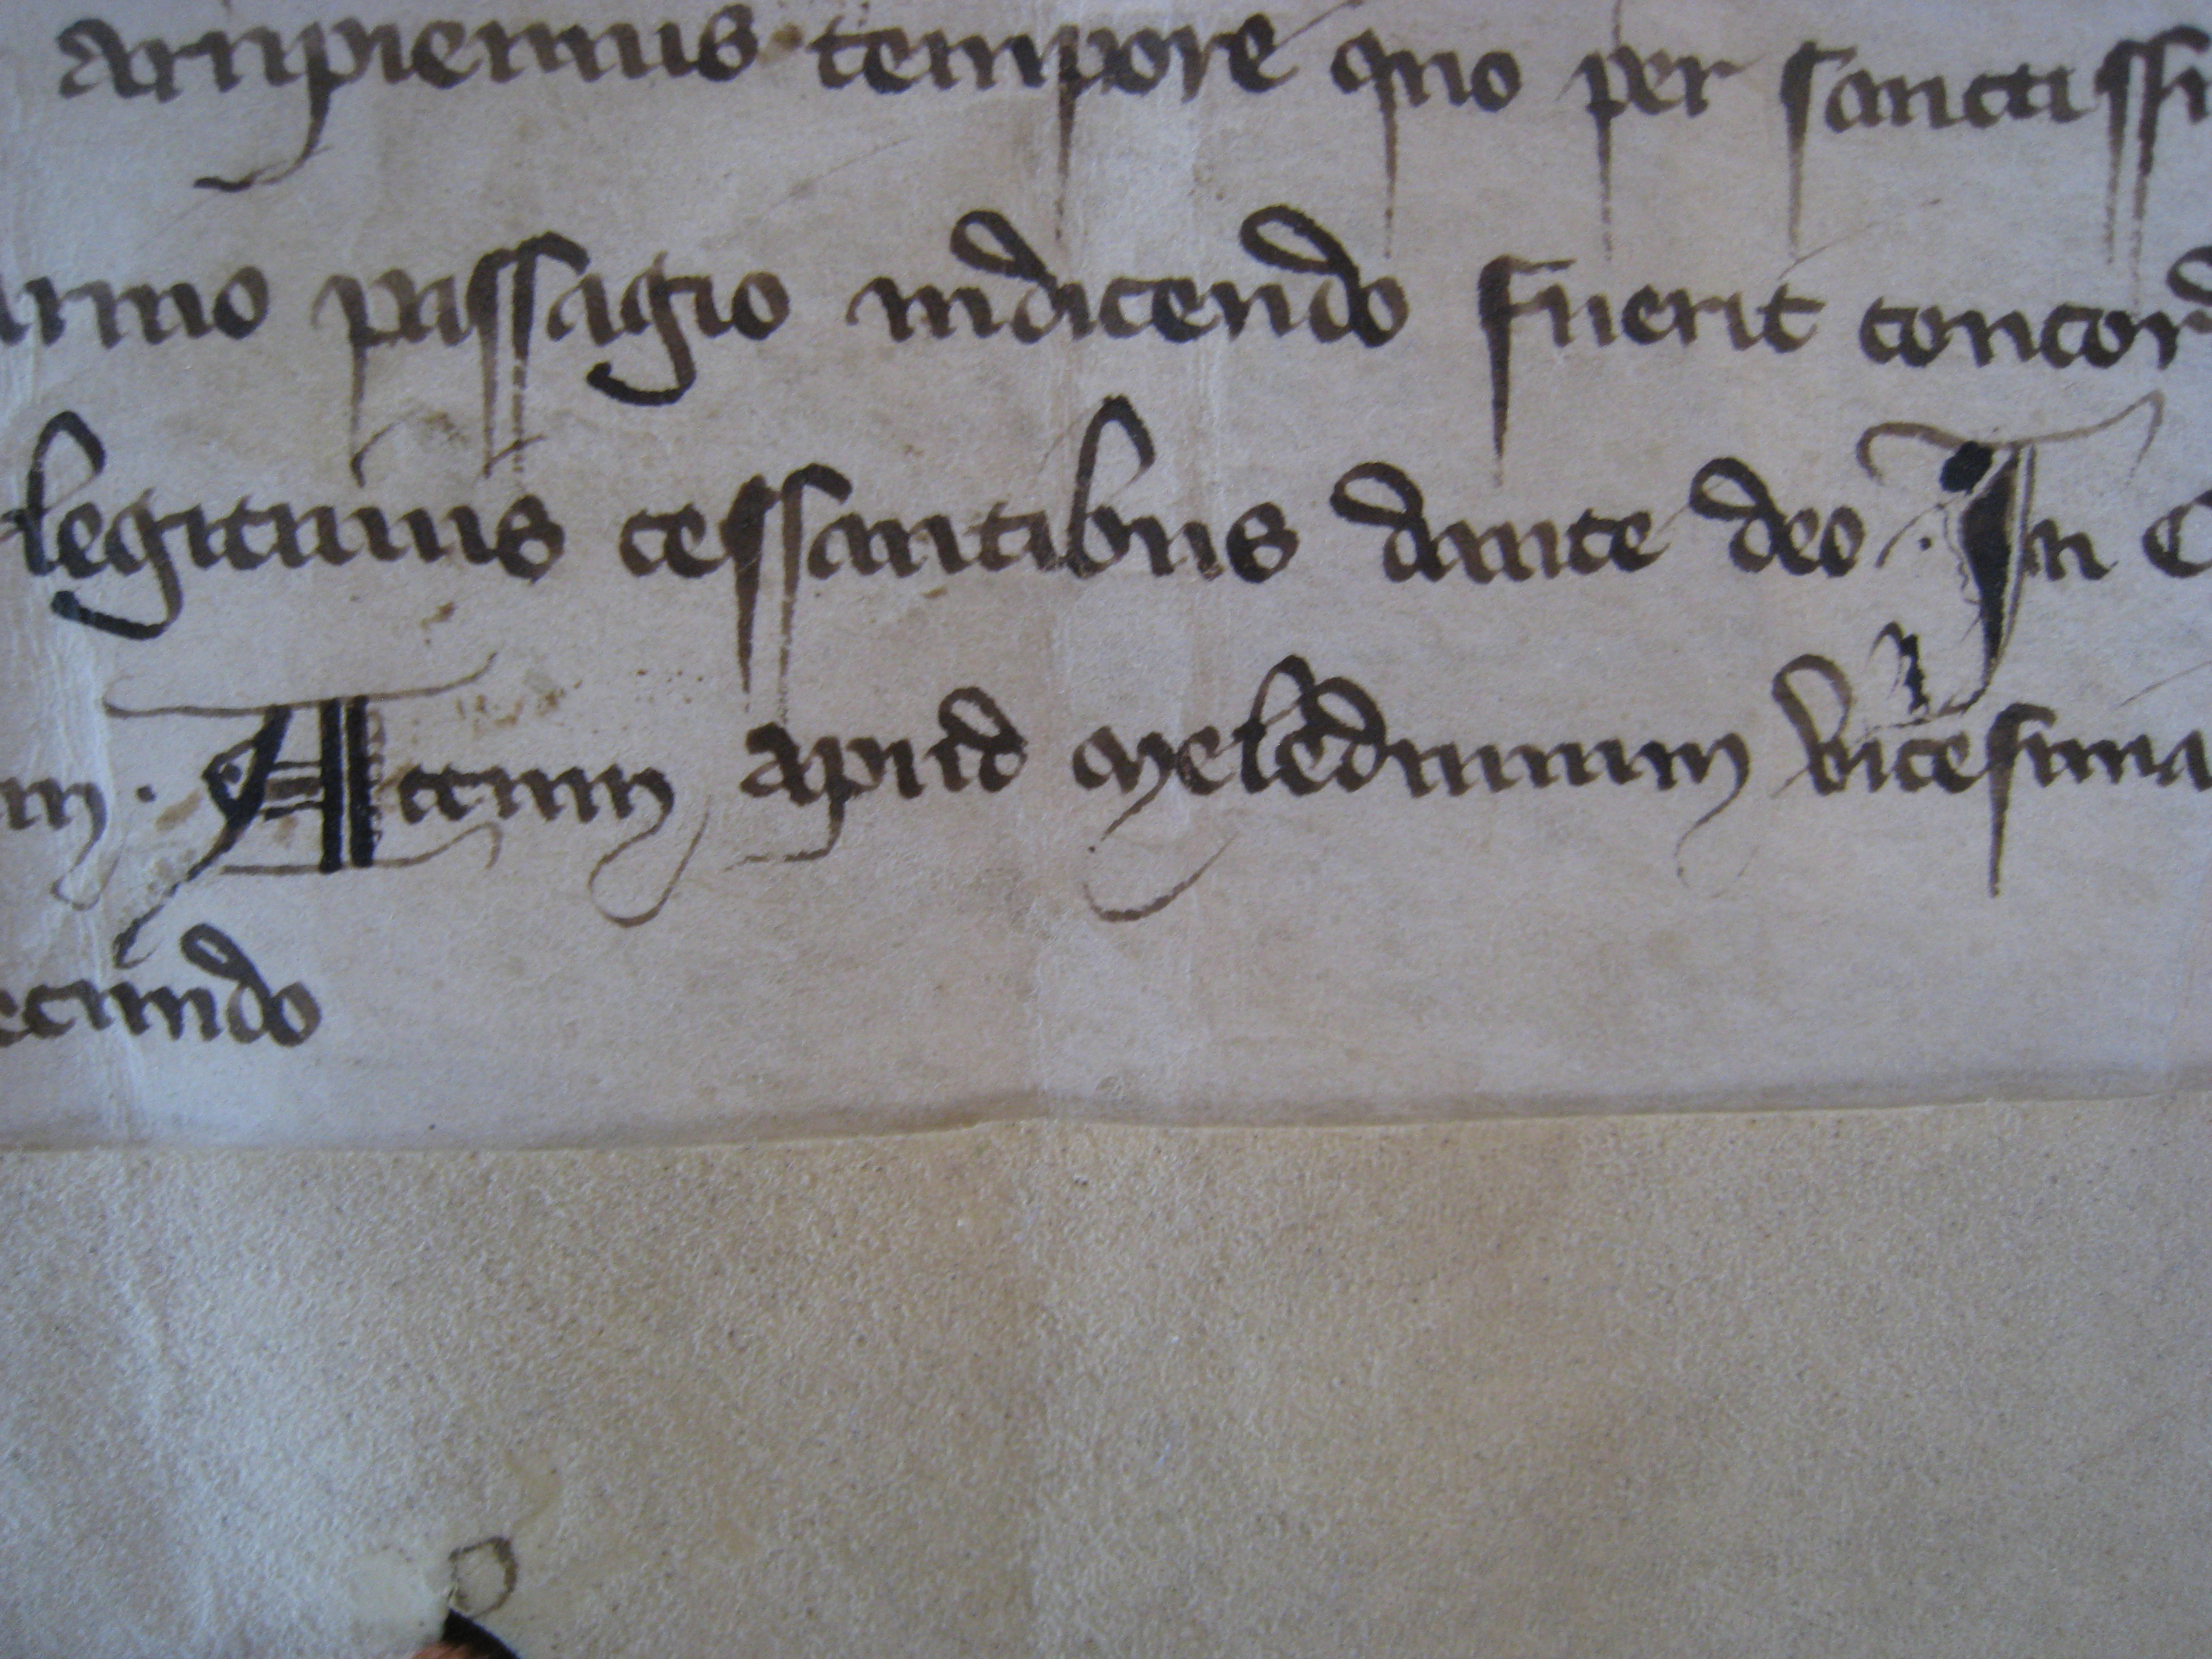 arripiemus tempore quo per sanctissi
passagio indicendo fuerit concord
legitimis cessantibus dante deo. In C
m. Actum apud Meledunum vicesima
ecundo